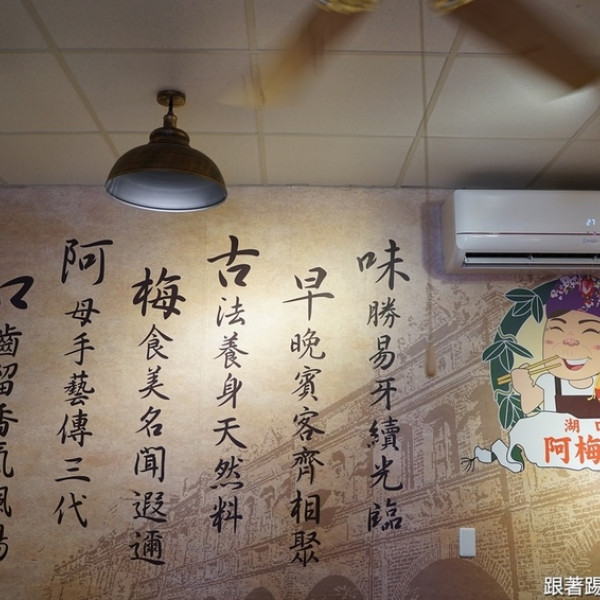 味勝易牙續光臨
早晚賓客齊相聚
古法養身天然料
梅食美名聞遐邇
阿母手藝傳三代
口齒留香氣風揚
湖口
阿梅
27
跟著踢